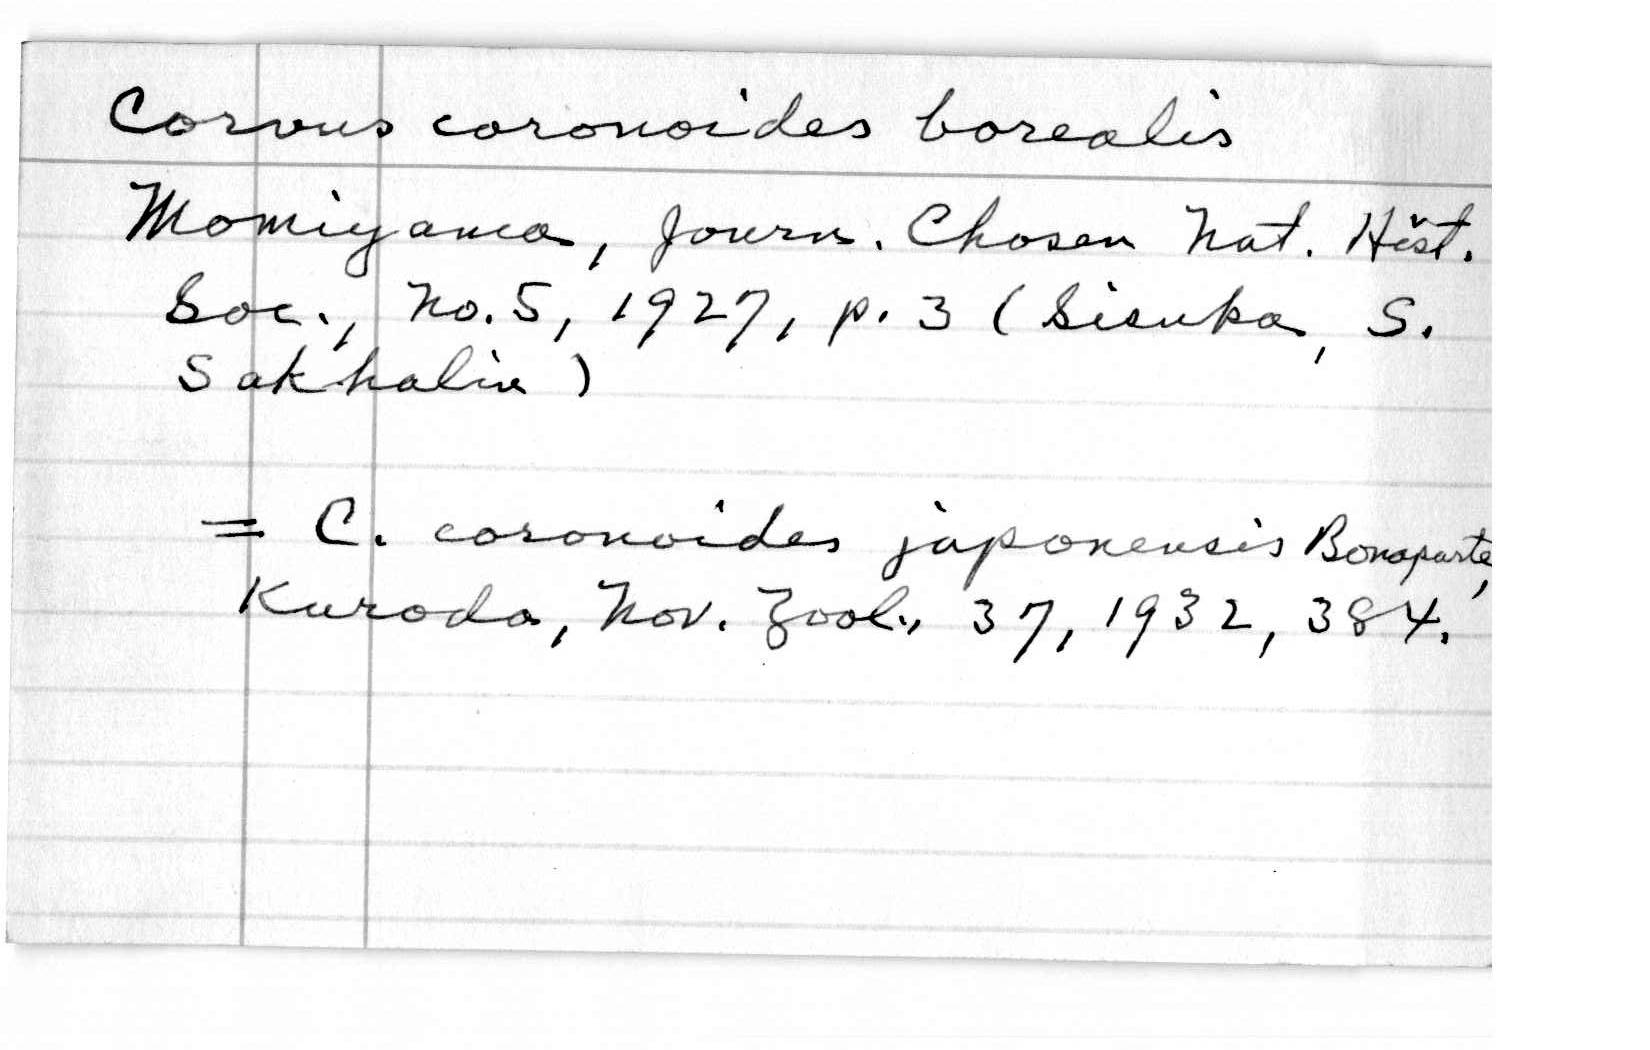 Corvus coronoides borealis
Momiyama, Journ. Chosen Nat. Hist.
Soc., No. 5, 1927, p. 3 (Sisuka, S.
Sakhalin)
= C. coronoides japonensis Bonaparte,
Kuroda, Nov. Zool., 37, 1932, 384.